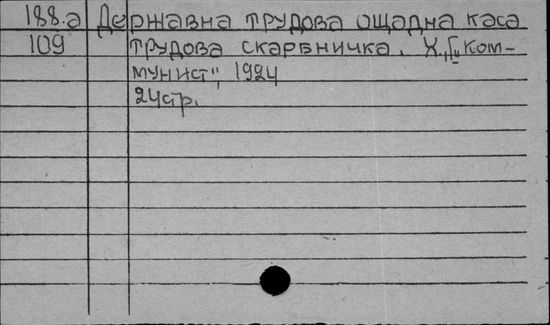 188.а Державна трудова ощадна каса
109 трудова скарбничка. Х.,
мунист", 1924
24стр.